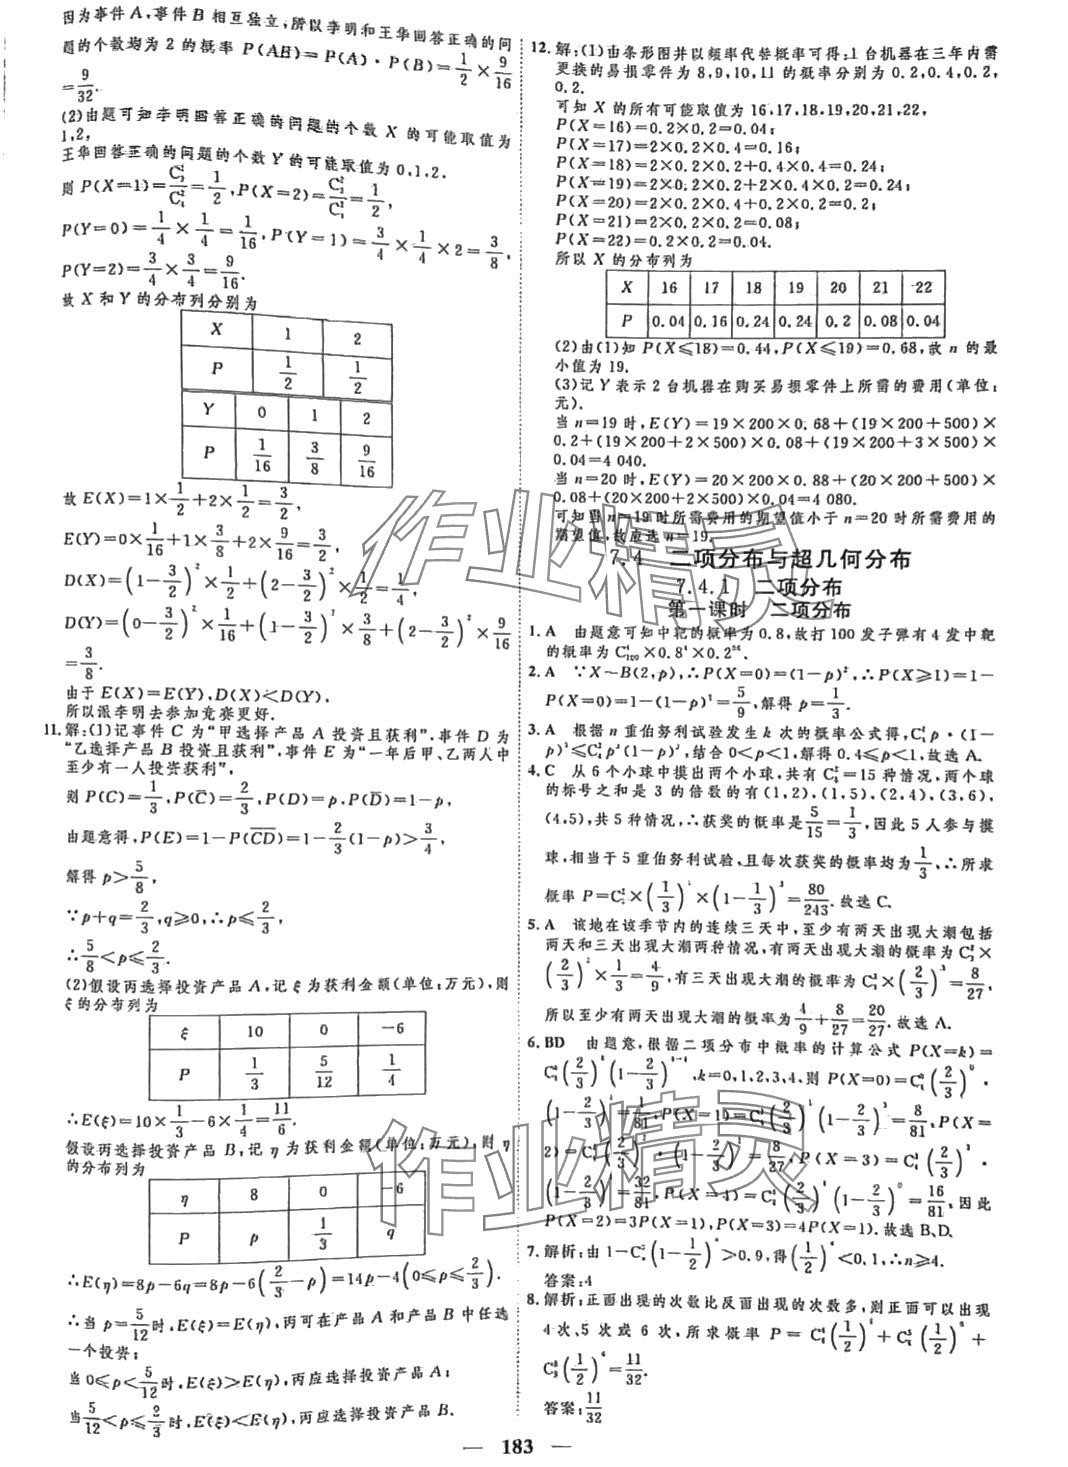 因为事件 A,事件 B 相互独立,所以李明和王华回答正确的问
题的个数均为 2 的概率 P(AB)=P(A)·P(B)=1/2×9/16
=9/32.
(2)由题可知李明回答正确的问题的个数 X 的可能取值为
1,2,
王华回答正确的问题的个数 Y 的可能取值为 0,1,2.
P(Y=0)=1/4×1/4=1/16,P(Y=1)=3/4×1/4×2=3/8,
P(Y=2)=3/4×3/4=9/16.
故 X 和 Y 的分布列分别为
X 1 2
P 1/2 1/2
Y 0 1 2
P 1/16 3/8 9/16
故 E(X)=1×1/2+2×1/2=3/2,
E(Y)=0×1/16+1×3/8+2×9/16=3/2,
D(X)=(1-3/2)²×1/2+(2-3/2)²×1/2=1/4,
D(Y)=(0-3/2)²×1/16+(1-3/2)²×3/8+(2-3/2)²×9/16
=3/8.
由于 E(X)=E(Y),D(X)<D(Y).
所以派李明去参加竞赛更好.
11.解:(1)记事件 C 为“甲选择产品 A 投资且获利”,事件 D 为
“乙选择产品 B 投资且获利”,事件 E 为“一年后甲、乙两人中
至少有一人投资获利”,
则 P(C)=1/3,P(C̅)=2/3,P(D)=p,P(D̅)=1-p,
由题意得,P(E)=1-P(C̅D̅)=1-2/3(1-p)>3/4,
解得 p>5/8,
∵p+q=2/3,q⩾0,∴p⩽2/3,
∴5/8<p⩽2/3.
(2)假设丙选择投资产品 A,记 ξ 为获利金额(单位:万元),则
ξ 的分布列为
ξ 10 0 -6
P 1/3 5/12 1/4
∴E(ξ)=10×1/3-6×1/4=11/6.
假设丙选择投资产品 B,记 η 为获利金额(单位:万元),则 η
的分布列为
η 8 0 -6
P p 1/3 q
∴E(η)=8p-6q=8p-6(2/3-p)=14p-4(0⩽p⩽2/3).
∴当 p=5/12时,E(ξ)=E(η),丙可在产品 A 和产品 B 中任选
一个投资;
当 0⩽p<5/12时,E(ξ)>E(η),丙应选择投资产品 A;
当 5/12<p⩽2/3时,E(ξ)<E(η),丙应选择投资产品 B.
12.解:(1)由条形图并以频率代替概率可得:1 台机器在三年内需
更换的易损零件为 8,9,10,11 的概率分别为 0.2,0.4,0.2,
0.2.
可知 X 的所有可能取值为 16,17,18,19,20,21,22,
P(X=16)=0.2×0.2=0.04;
P(X=17)=2×0.2×0.4=0.16;
P(X=18)=0.2×0.2×2+0.4×0.4=0.24;
P(X=19)=2×0.2×0.2+2×0.4×0.2=0.24;
P(X=20)=2×0.2×0.4+0.2×0.2=0.2;
P(X=21)=2×0.2×0.2=0.08;
P(X=22)=0.2×0.2=0.04.
所以 X 的分布列为
X 16 17 18 19 20 21 22
P 0.04 0.16 0.24 0.24 0.2 0.08 0.04
(2)由(1)知 P(X⩽18)=0.44,P(X⩽19)=0.68,故 n 的最
小值为 19.
(3)记 Y 表示 2 台机器在购买易损零件上所需的费用(单位:
元).
当 n=19 时,E(Y)=19×200×0.68+(19×200+500)×
0.2+(19×200+2×500)×0.08+(19×200+3×500)×
0.04=4 040.
当 n=20 时,E(Y)=20×200×0.88+(20×200+500)×
0.08+(20×200+2×500)×0.04=4 080.
可知当 n=19 时所需费用的期望值小于 n=20 时所需费用的
期望值,故应选 n=19.
7.4 二项分布与超几何分布
7.4.1 二项分布
第一课时 二项分布
1.A 由题意可知中靶的概率为 0.8,故打 100 发子弹有 4 发中靶
2.A ∵X~B(2,p),∴P(X=0)=(1-p)²,∴P(X⩾1)=1-
P(X=0)=1-(1-p)²=5/9,解得 p=1/3.
3.A 根据 n 重伯努利试验发生 k 次的概率公式得,C¹₄p·(1-
p)³⩽C²₄p²(1-p)²,结合 0<p<1,解得 0.4⩽p<1,故选 A.
4.C 从 6 个小球中摸出两个小球,共有 C²₆=15 种情况,两个球
的标号之和是 3 的倍数的有(1,2),(1,5),(2,4),(3,6),
(4,5),共 5 种情况,∴获奖的概率是5/15=1/3,因此 5 人参与摸
球,相当于 5 重伯努利试验,且每次获奖的概率均为1/3,∴所求
概率 P=C²₅×(1/3)²×(1-1/3)³=80/243.故选 C.
5.A 该地在该季节内的连续三天中,至少有两天出现大潮包括
两天和三天出现大潮两种情况,有两天出现大潮的概率为 C²₃×
(2/3)²×1/3=4/9,有三天出现大潮的概率为 C³₃×(2/3)³=8/27,
所以至少有两天出现大潮的概率为4/9+8/27=20/27.故选 A.
6.BD 由题意,根据二项分布中概率的计算公式 P(X=k)=
C^k₄(2/3)^k(1-2/3)^(4-k),k=0,1,2,3,4,则 P(X=0)=C⁰₄(2/3)⁰·
(1-2/3)⁴=1/81,P(X=1)=C¹₄(2/3)¹(1-2/3)³=8/81,P(X=
2)=C²₄(2/3)²·(1-2/3)²=8/27,P(X=3)=C³₄(2/3)³·
(1-2/3)¹=32/81,P(X=4)=C⁴₄(2/3)⁴(1-2/3)⁰=16/81,因此
P(X=2)=3P(X=1),P(X=3)=4P(X=1).故选 B、D.
7.解析:由 1-C⁰ₙ(1-1/2)ⁿ>0.9,得(1/2)ⁿ<0.1,∴n⩾4.
答案:4
8.解析:正面出现的次数比反面出现的次数多,则正面可以出现
4 次、5 次或 6 次,所求概率 P=C⁴₆(1/2)⁶+C⁵₆(1/2)⁶+
C⁶₆(1/2)⁶=11/32.
答案:11/32
— 183 —
作业精灵
作业精灵